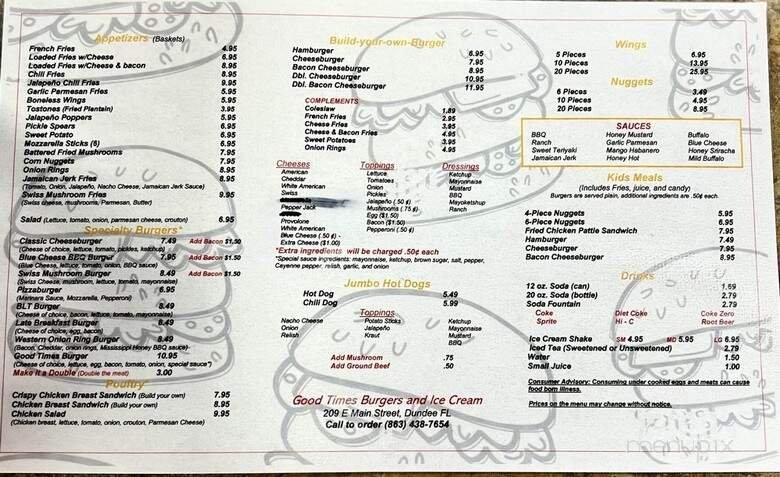 Appetizers (Baskets)
French Fries 4.95
Loaded Fries w/Cheese 6.95
Loaded Fries w/Cheese & bacon 8.95
Chili Fries 8.95
Jalapeño Chili Fries 9.95
Garlic Parmesan Fries 5.95
Boneless Wings 5.95
Tostones (Fried Plantain) 3.95
Jalapeño Poppers 5.95
Pickle Spears 6.95
Sweet Potato 6.95
Mozzarella Sticks (5) 6.95
Battered Fried Mushrooms 7.95
Corn Nuggets 7.95
Onion Rings 8.95
Jamaican Jerk Fries 8.95
(Tomato, Onion, Jalapeño, Nacho Cheese, Jamaican Jerk Sauce)
Swiss Mushroom Fries 9.95
(Swiss cheese, mushrooms, Parmesan, Butter)
Salad (Lettuce, tomato, onion, parmesan cheese, crouton) 6.95
Specialty Burgers*
Classic Cheeseburger 7.49 Add Bacon $1.50
(Cheese of choice, lettuce, tomato, pickles, ketchup)
Blue Cheese BBQ Burger 7.95 Add Bacon $1.50
(Blue Cheese, lettuce, tomato, onion, BBQ sauce)
Swiss Mushroom Burger 8.49 Add Bacon $1.50
(Swiss Cheese, mushroom, lettuce, tomato, mayonnaise)
Pizzaburger 6.95
(Marinara Sauce, Mozzarella, Pepperoni)
BLT Burger 8.49
(Cheese of choice, bacon, lettuce, tomato, mayonnaise)
Late Breakfast Burger 8.49
(Cheese of choice, egg, bacon)
Western Onion Ring Burger 8.49
(Bacon, Cheddar, onion rings, Mississippi Honey BBQ sauce)
Good Times Burger 10.95
(Cheese of choice, lettuce, egg, bacon, tomato, onion, special sauce*)
Make it a Double (Double the meat) 3.00
Poultry
Crispy Chicken Breast Sandwich (Build your own) 7.95
Chicken Breast Sandwich (Build your own) 8.95
Chicken Salad 9.95
(Chicken breast, lettuce, tomato, onion, crouton, Parmesan Cheese)
Build-your-own-Burger
Hamburger 6.95
Cheeseburger 7.95
Bacon Cheeseburger 8.95
Dbl. Cheeseburger 10.95
Dbl. Bacon Cheeseburger 11.95
COMPLEMENTS
Coleslaw 1.89
French Fries 2.95
Cheese Fries 3.95
Cheese & Bacon Fries 4.95
Sweet Potatoes 3.95
Onion Rings 4.95
Cheeses
American
Cheddar
White American
Swiss
Pepper Jack
Provolone
White American
Blue Cheese (.50 ¢)
Extra Cheese ($1.00)
Toppings
Lettuce
Tomatoes
Onion
Pickles
Jalapeño (.50 ¢)
Mushrooms (.75 ¢)
Egg ($1.50)
Bacon ($1.50)
Pepperoni (.50 ¢)
Dressings
Ketchup
Mayonnaise
Mustard
BBQ
Mayoketchup
Ranch
*Extra ingredients will be charged .50¢ each
*Special sauce ingredients: mayonnaise, ketchup, brown sugar, salt, pepper,
Cayenne pepper, relish, garlic, and onion
Jumbo Hot Dogs
Hot Dog 5.49
Chili Dog 5.99
Toppings
Nacho Cheese Potato Sticks Ketchup
Onion Jalapeño Mayonnaise
Relish Kraut Mustard
BBQ
Add Mushroom .75
Add Ground Beef .50
Good Times Burgers and Ice Cream
209 E Main Street, Dundee FL
Call to order (863) 438-7654
Wings
5 Pieces 6.95
10 Pieces 13.95
20 Pieces 25.95
Nuggets
6 Pieces 3.49
10 Pieces 4.95
20 Pieces 8.95
SAUCES
BBQ Honey Mustard Buffalo
Ranch Garlic Parmesan Blue Cheese
Sweet Teriyaki Mango Habanero Honey Sriracha
Jamaican Jerk Honey Hot Mild Buffalo
Kids Meals
(Includes Fries, juice, and candy)
Burgers are served plain, additional ingredients are .50¢ each.
4-Piece Nuggets 5.95
6-Piece Nuggets 6.95
Fried Chicken Pattie Sandwich 7.95
Hamburger 7.49
Cheeseburger 7.95
Bacon Cheeseburger 8.95
Drinks
12 oz. Soda (can) 1.69
20 oz. Soda (bottle) 2.79
Soda Fountain 2.79
Coke Diet Coke Coke Zero
Sprite Hi - C Root Beer
Ice Cream Shake SM 4.95 MD 5.95 LG 6.95
Iced Tea (Sweetened or Unsweetened) 2.79
Water 1.50
Small Juice 1.00
Consumer Advisory: Consuming under cooked eggs and meats can cause
food born illness.
Prices on the menu may change without notice.
menupix